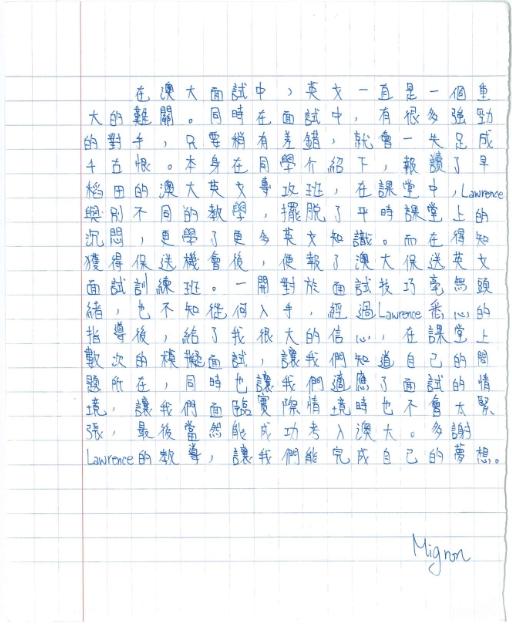 在澳大面試中，英文一直是一個重
大的難關。同時在面試中，有很多強勁
的對手，只要稍有差錯，就會一失足成
千古恨。本身在同學介紹下，報讀了早
稻田的澳大英文專攻班，在課堂中，Lawrence
與別不同的教學，擺脫了平時課堂上的
沉悶，更學了更多英文知識。而在得知
獲得保送機會後，便報了澳大保送英文
面試訓練班。一開對於面試技巧毫無頭
緒，也不知從何入手，經過Lawrence悉心的
指導後，給了我很大的信心，在課堂上
數次的模擬面試，讓我們知道自己的問
題所在，同時也讓我們適應了面試的情
境，讓我們面臨實際情境時也不會太緊
張，最後當然能成功考入澳大。多謝
Lawrence的教導，讓我們能完成自己的夢想。
Mignon